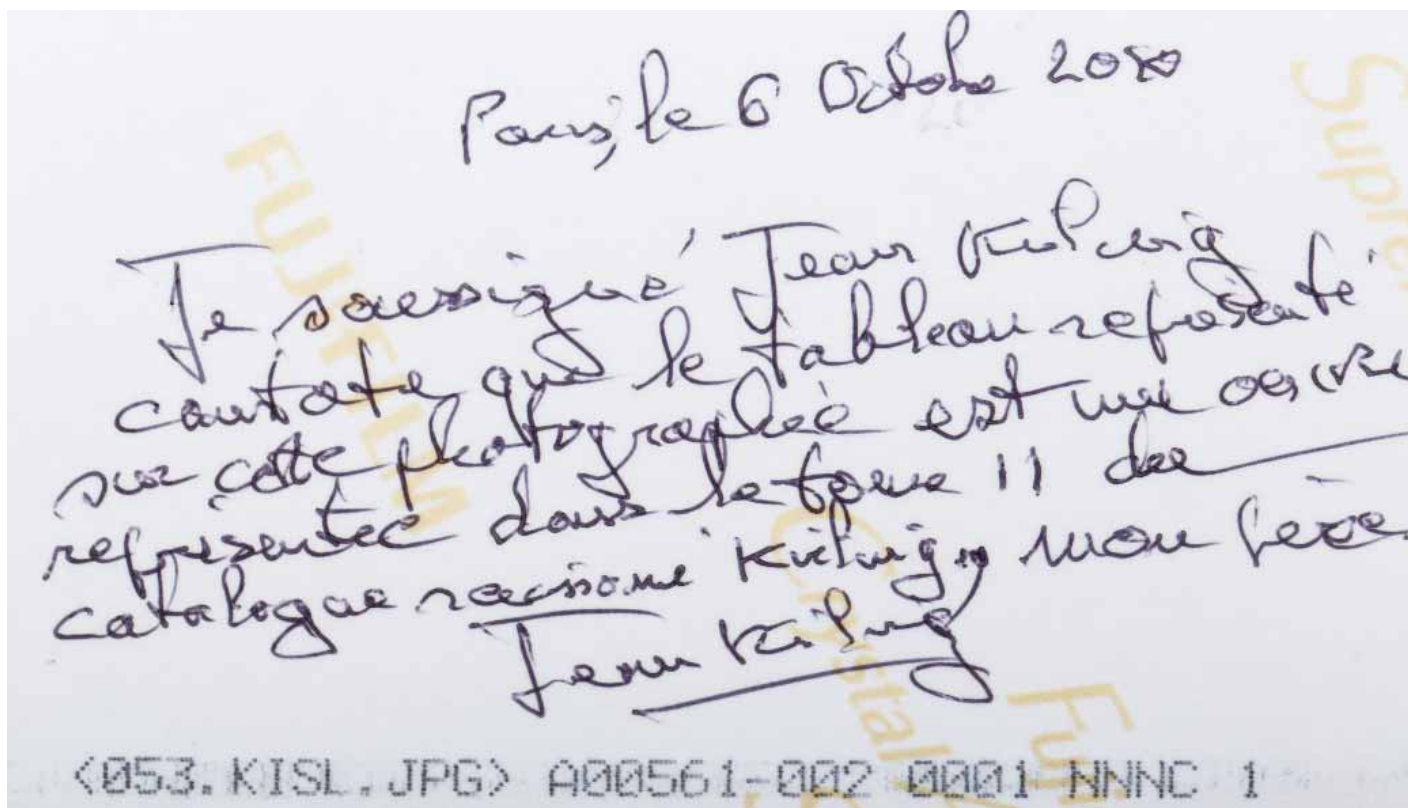 Paris, le 6 Octobre 2010
Je soussigné Jean Kisling
constate que le tableau représenté
sur cette photographie est une oeuvre
représentée dans le tome II du
catalogue raisonné Kisling, mon père
Jean Kisling
<053.KISL.JPG> A00561-002 0001 NNNC 1
FUJIFILM
Crystal
Fuji
Supre